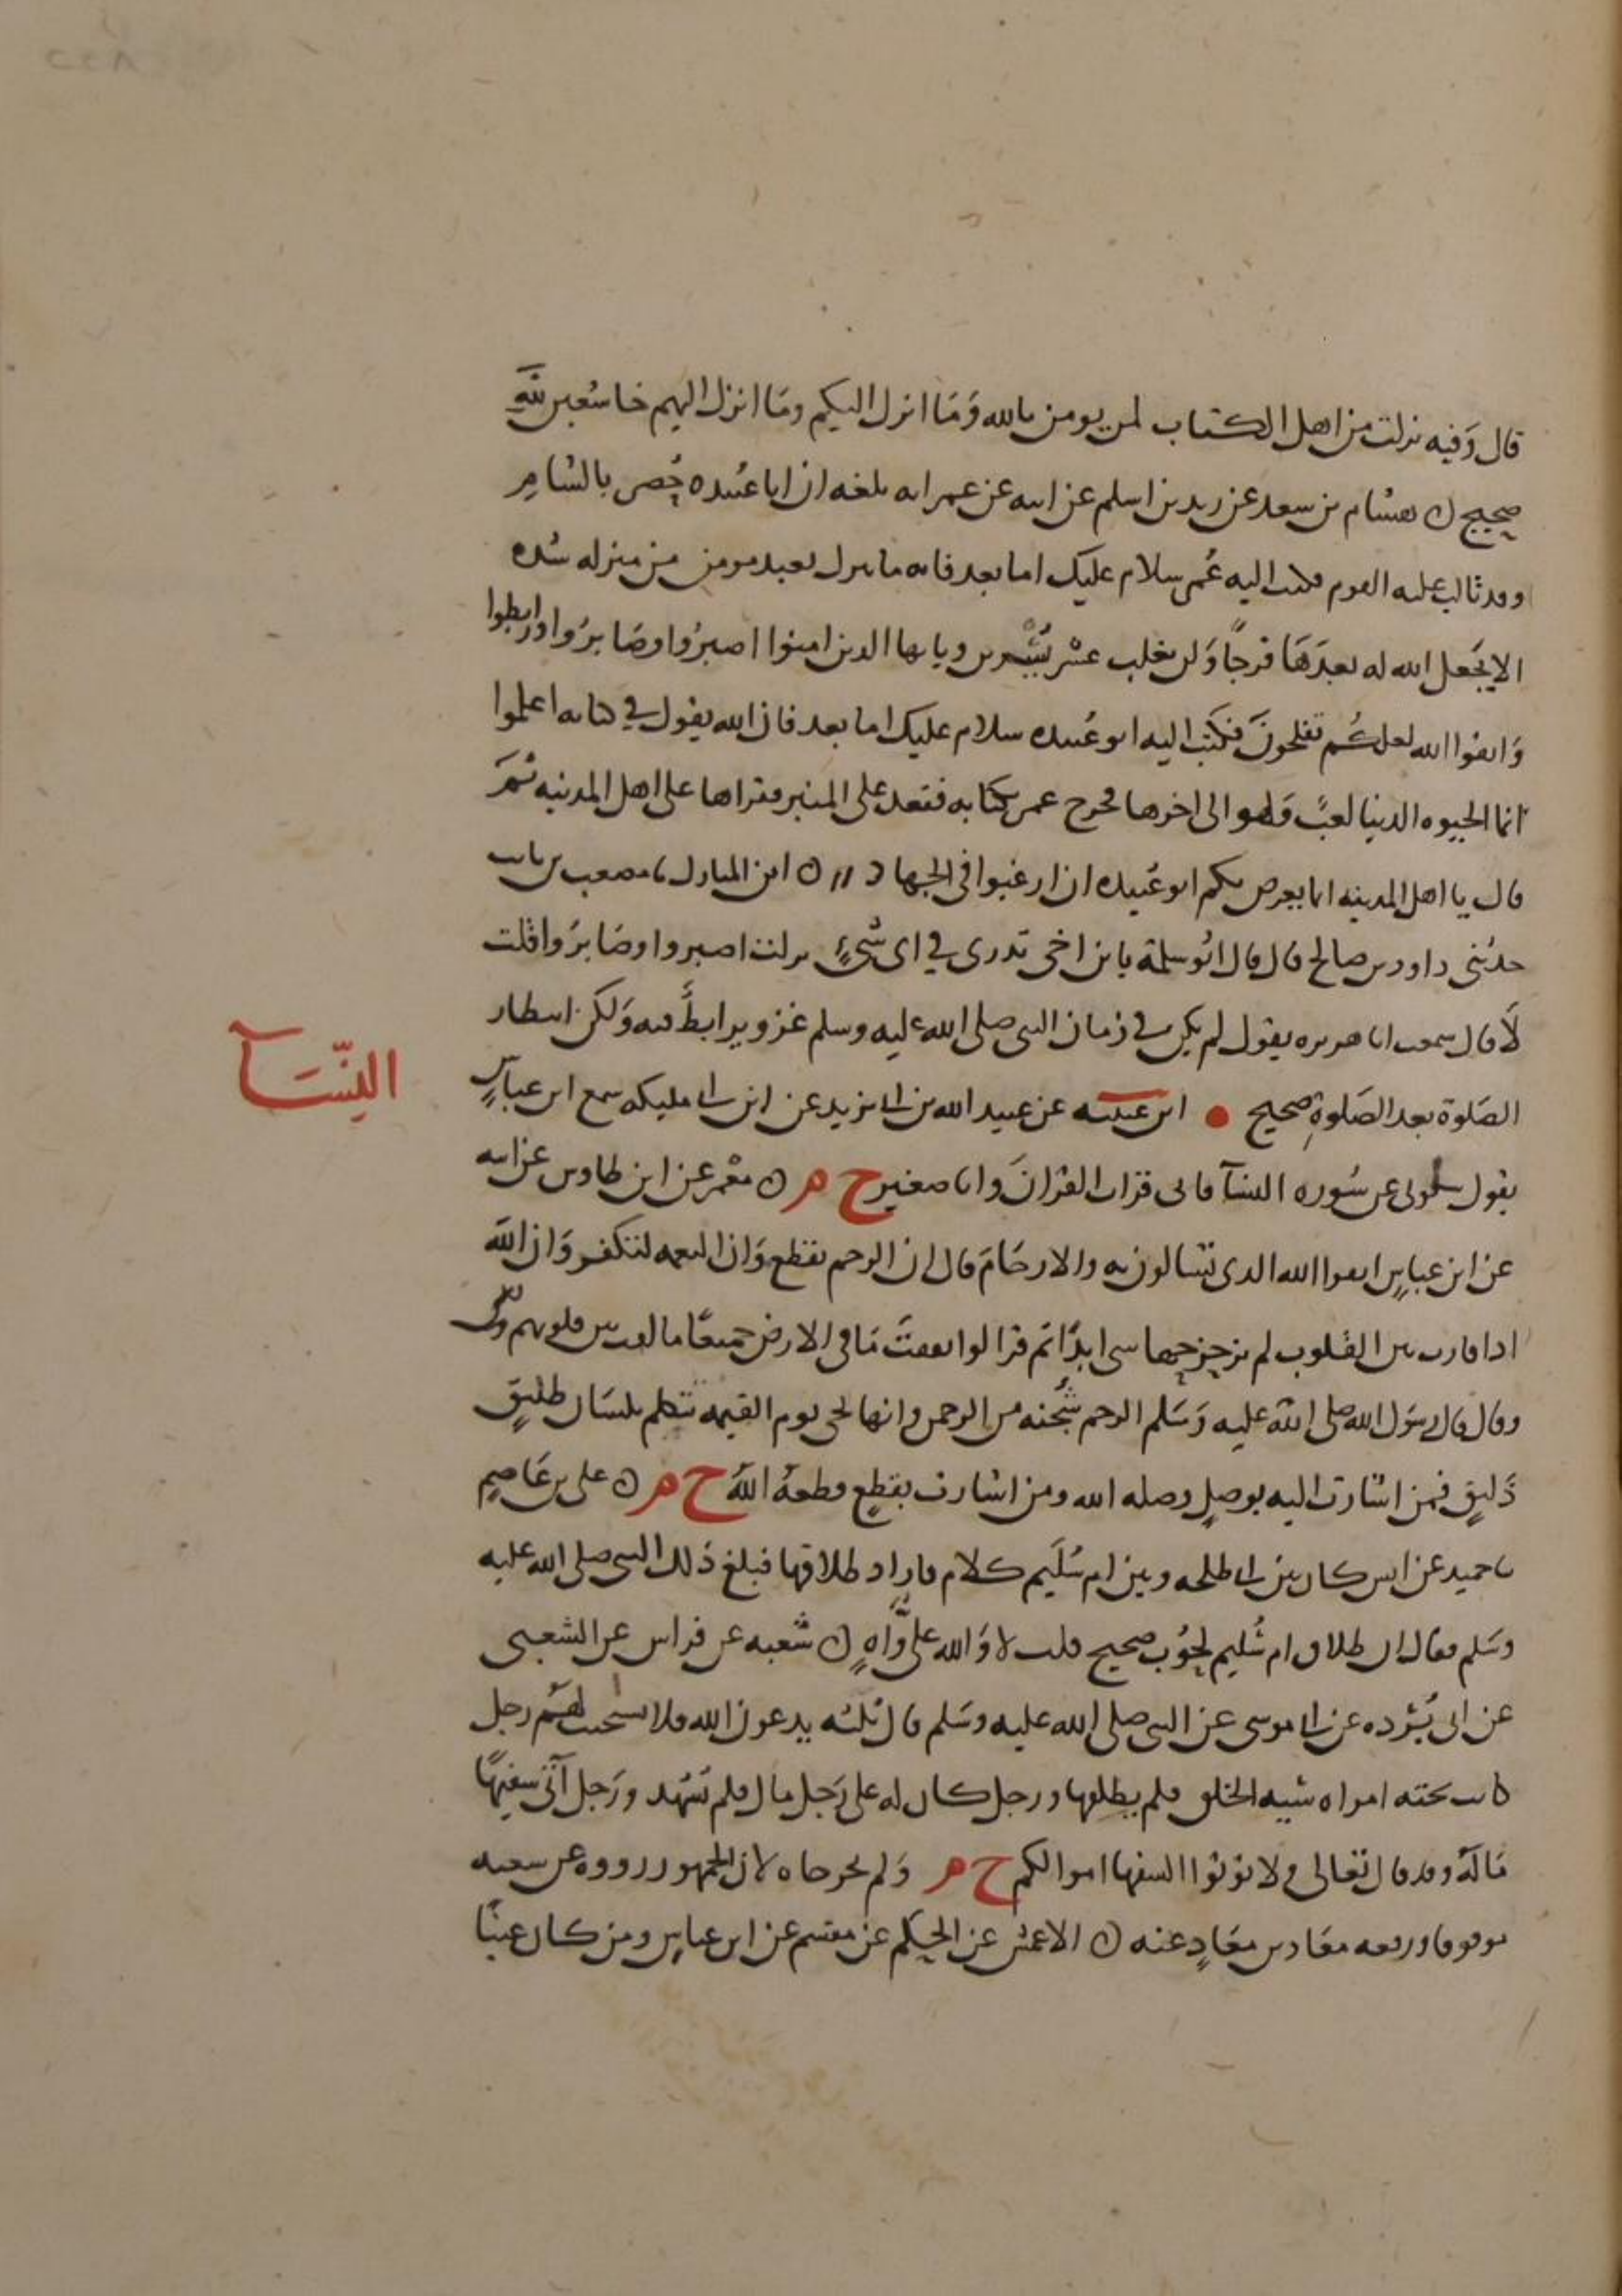 قال وَفيه نزلت من اهل الكتاب لمن يومن بالله وَمَا انزل اليكم ومَا انزل اليهم خاشعين لله
صحيح ن هشام بن سعد عن زيد بن اسلم عن ابيه عن عمر انه بلغه ان ابا عبيده حُصر بالشامِ
وقد تالب عليه القوم فكتب اليه عُمر سلام عليك اما بعد فانه ما ينزل بعبد مومن من منزله شده
الا يجَعل الله له بعدَهَا فرجًا وَلن يغلب عسْر يُسْرين ويايها الذين امنوا اصبرُوا وصَابرُوا ورابطوا
وَاتقوا الله لعلكُم تفلحونَ فكتبَ اليه ابو عُبيده سلام عليك اما بعد فان الله يقول في كتابه اعلموا
انما الحيوه الدنيا لعبٌ وَلهو الى اخرها فخرج عمر بكتابه فقعد على المنبر فقراها على اهل المدينه ثمَ
قال يا اهل المدينه انما يعرض بكم ابو عُبيده ان ارغبوا في الجهاد // ن ابن المبارك نا مصعب بن ثابت
حدثني داود بن صالح قال قال ابُو سلمة يا بن اخي تدرى في اى شيءٍ نزلت اصبروا وصَابرَوا قلت
لاَ قال سمعت ابا هريره يقول لم يكن في زمان النبى صلى الله عليه وسلم غزو يرابطَُ فيه وَلكن انتظار
الصَلوة بعد الصَلوةِ صحيح • ابن عيينه عن عبيد الله بن ابى يزيد عن ابن ابى مليكه سمع ابن عباسٍ
النسَآ
يقول سلونى عن سُوره النسآ فانى قرات القرانَ وانا صغير خ م ن معْمر عن ابن طاوس عن ابيه
عن ابن عباسٍ اتقوا الله الذى تتسالون به والارحَامَ قال ان الرحم تقطع وَان النعمه لتكفر وَان الله
اذا قارب بين القلوب لم يزحزحها شى ابدًا ثم قرا لو انفقتَ مَا في الارض جميعًا ما الفت بين قلوبهم ولكن
وقال قال رسَول الله صلى الله عليه وَسَلم الرحم شُجنه من الرحمن وانها تجى يوم القيمه تتكلم بلسَان طليقٍ
ذَليقٍ فمن اشارت اليه بوصلٍ وصله الله ومن اشارت بقطعٍ قطعهُ اللهُ خ م ن على بن عَاصمٍ
نا حميد عن انس كان بين ابى طلحه وبين ام سُليَم كلام فاراد طلاقها فبلغ ذلك النبى صلى الله عليه
وسَلم فقال ان طلاق ام سُليم لحُوب صحيح قلت لا وَالله علىّ واهٍ ن شعبه عن فراس عن الشعبى
عن ابى بُرْده عن ابى موسى عن النبى صلى الله عليه وسَلم قال ثلثه يدعون الله فلا يستجيب لهَم رجل
كانت تحته امراه سَيه الخلق فلم يطلقها ورجل كان له على رَجل مال فلم يشهد ورَجل آتى سفيهًا
مَالهُ وقد قال تعَالى ولا توتوا السفها اموالكم خ م وَلم يخرجاه لان الجمهور رووه عن شعبه
موقوفا ورفعه معَاذ بن معَاذٍ عنه ن الاعمش عن الحَكم عن مقسم عن ابن عباسٍ ومن كان غنيًا